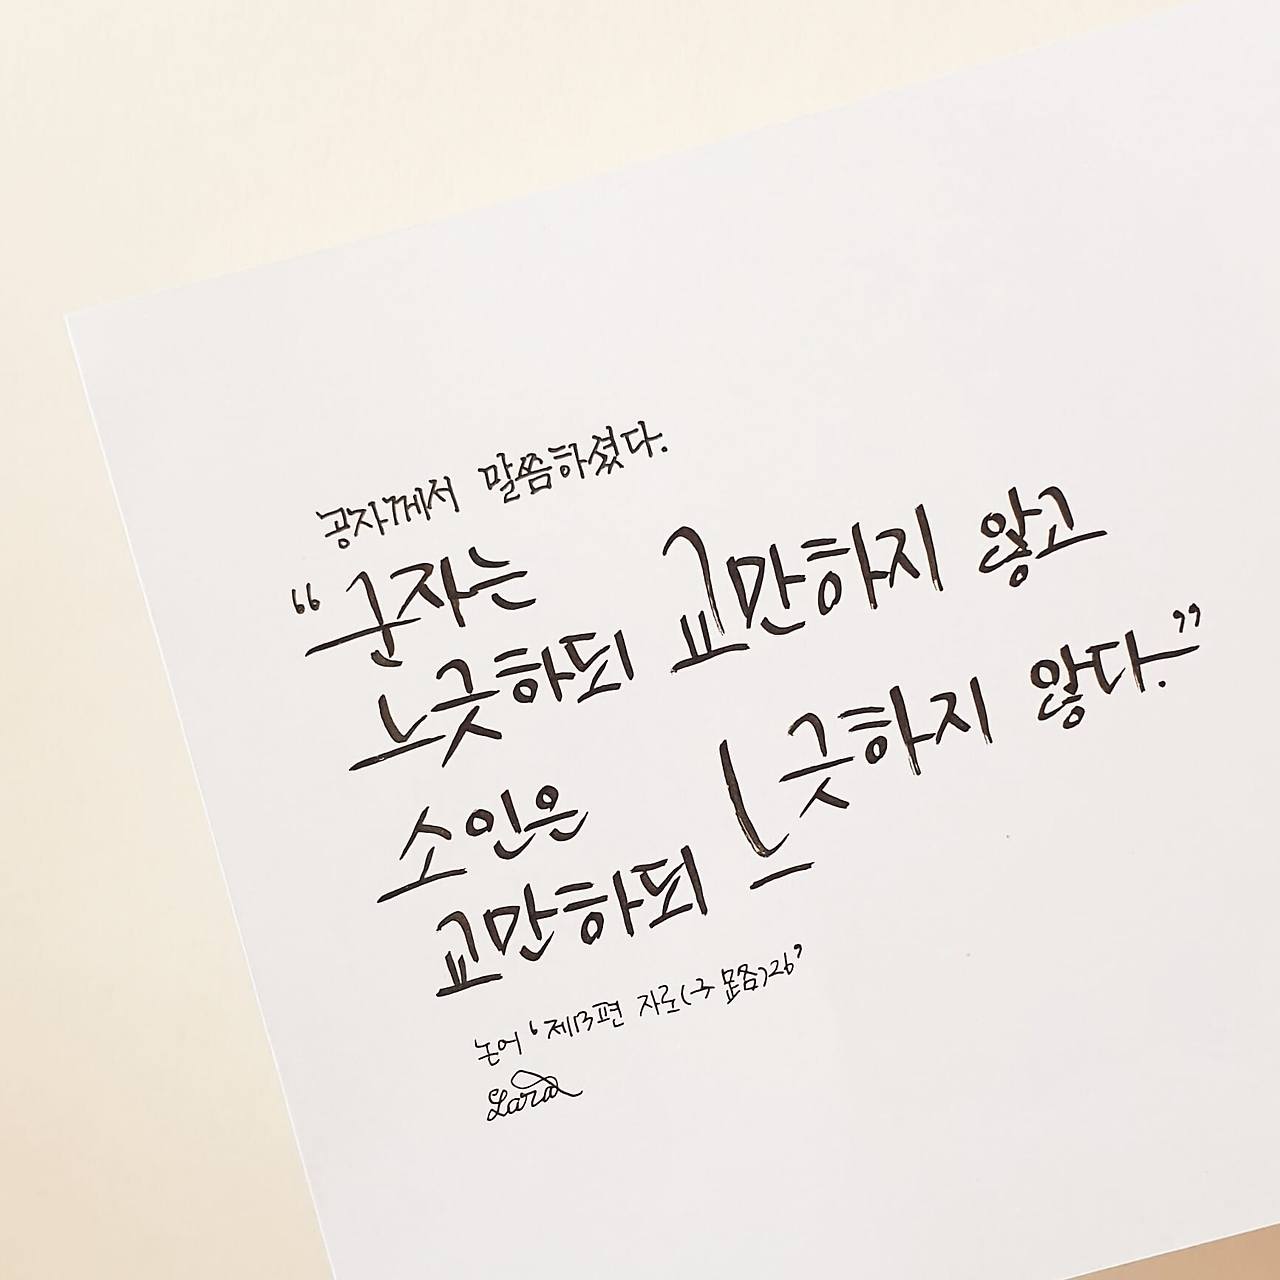 공자께서 말씀하셨다.
“군자는
느긋하되 교만하지 않고
소인은
교만하되 느긋하지 않다.”
논어 ‘제13편 자로(子路)26’
Lara